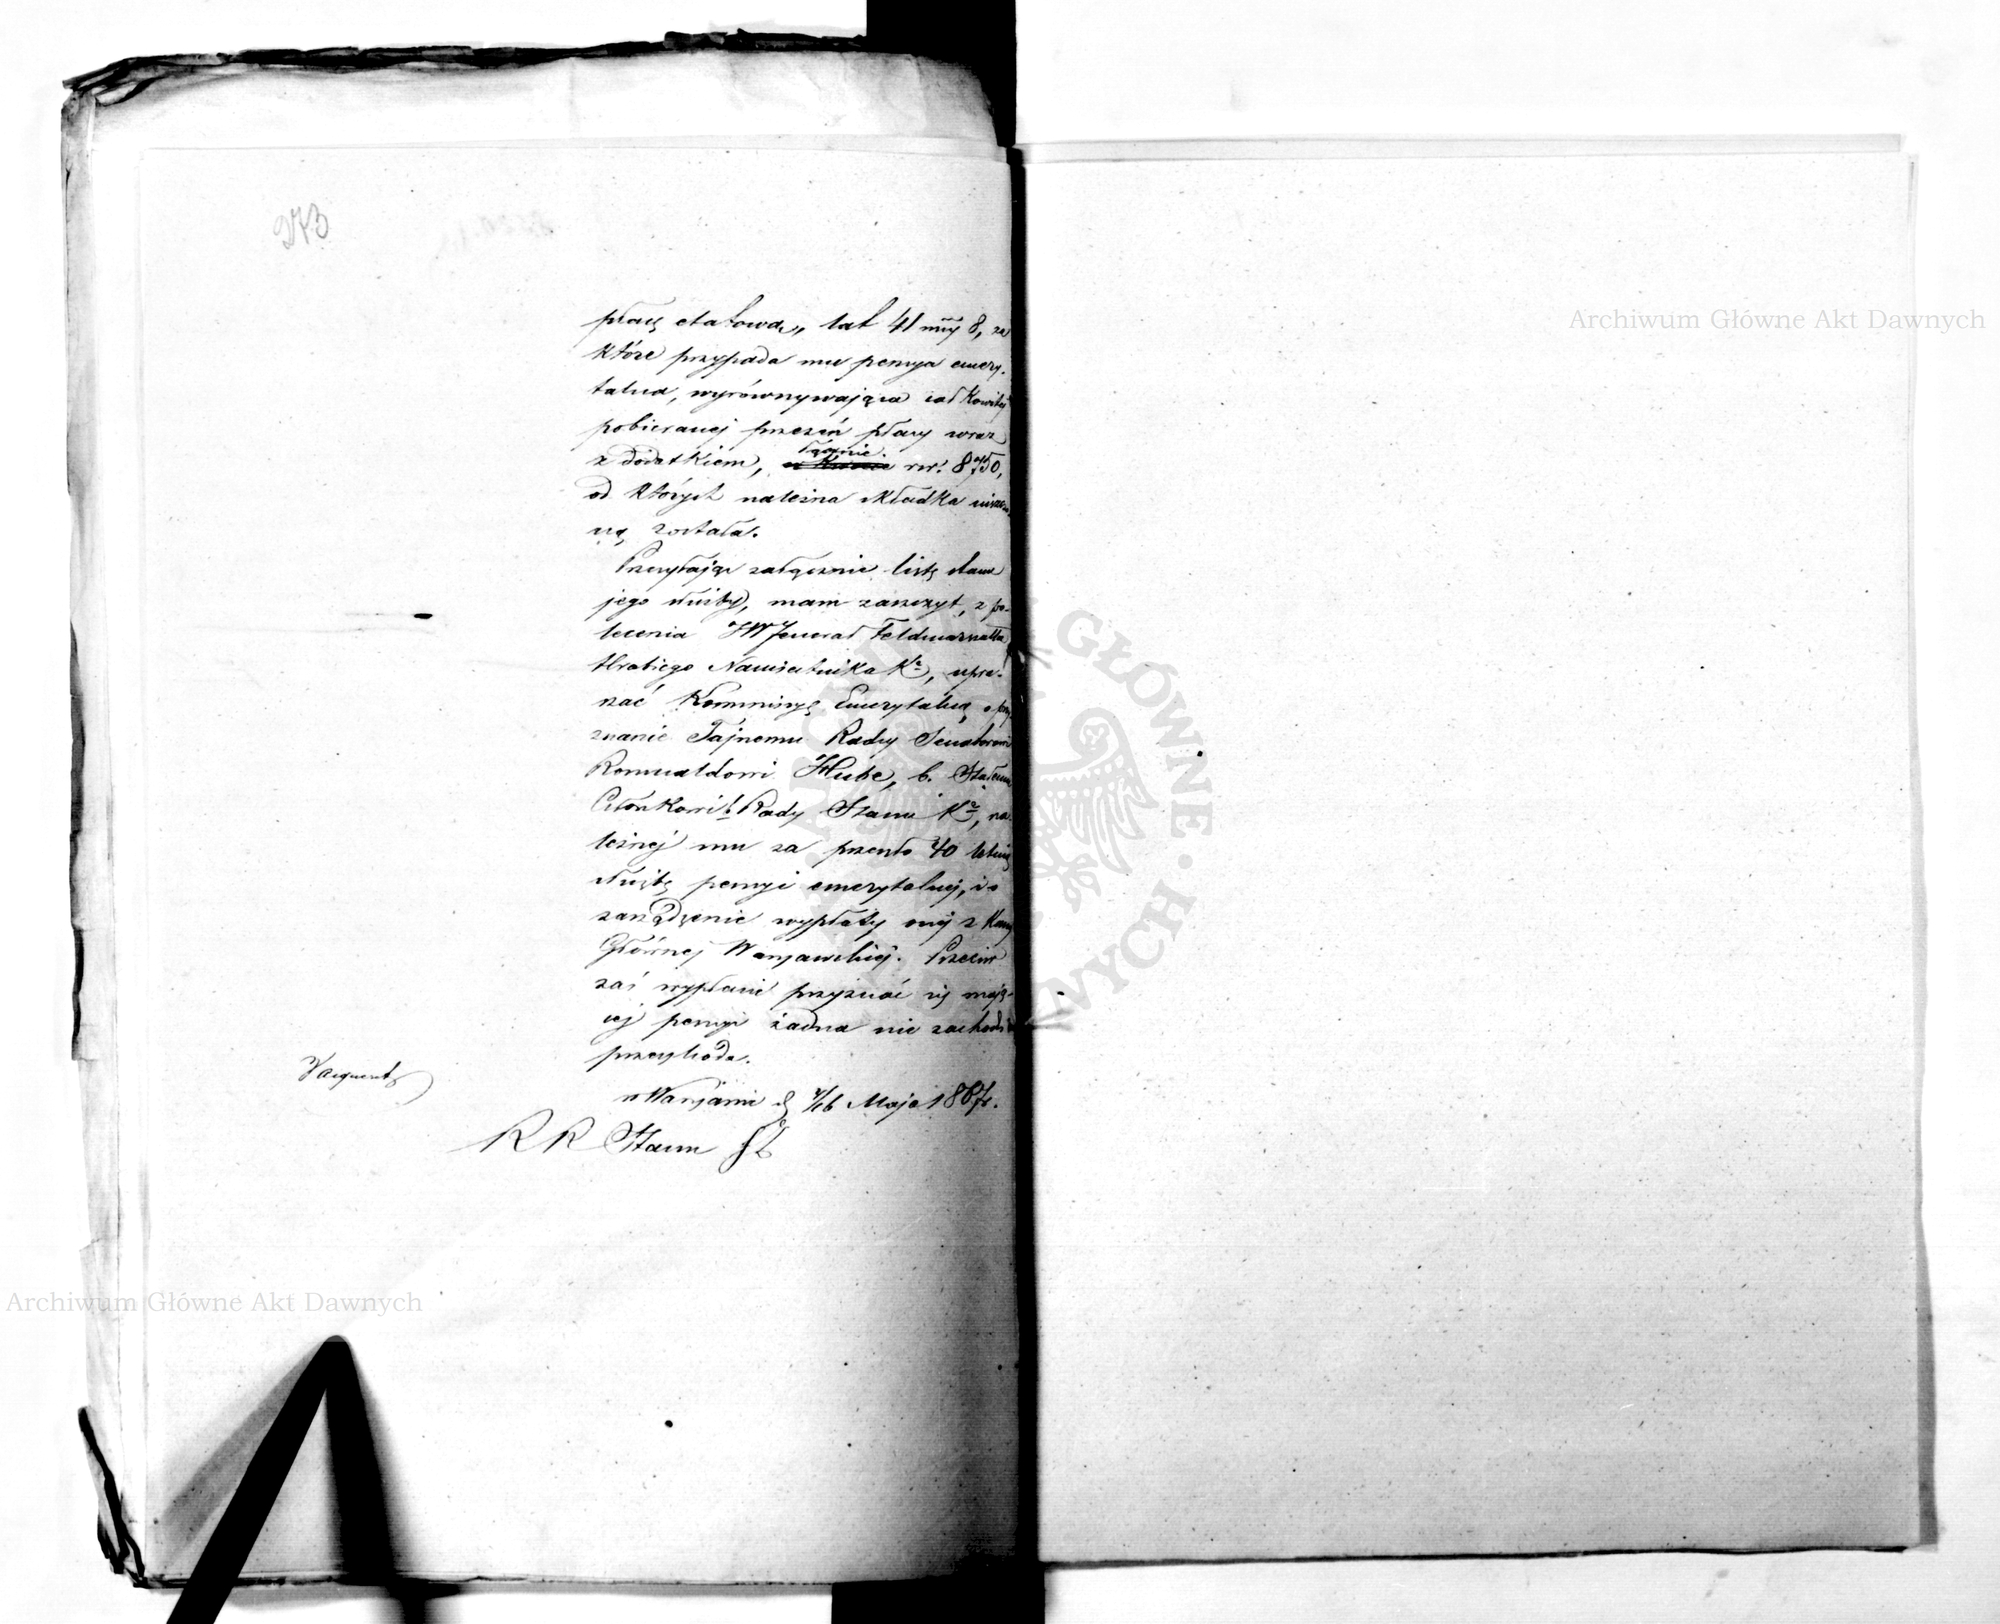 273
płacę etatową, lat 41 mcy 8, za
które przypada mu pensya emery-
talna, wyrównywająca całkowitej
pobieranej przezeń płacy wraz
z dodatkiem, łącznie rsr. 8750,
od których należna składka uiszczo-
ną została.
Przesyłając załącznie listę stanu
jego służby, mam zaszczyt, z po-
lecenia JW Jenerał Feldmarszałka
Hrabiego Namiestnika Kr, upra-
szać Kommissyę Emerytalną o przy-
znanie Tajnemu Radcy Senatorowi
Romualdowi Hube, b. Stałemu
Członkowi b. Rady Stanu Kr, na-
leżnej mu za przeszło 40 letnią
służbę pensyi emerytalnej, i o
zarządzenie wypłaty onej z Kassy
Głównej Warszawskiej. Przeciw
zaś wypłacie przyznać się mają-
cej pensyi żadna nie zachodzi
przeszkoda.
w Warszawie d. 4/16 Maja 1867 r.
RR Stanu
Archiwum Główne Akt Dawnych
Archiwum Główne Akt Dawnych